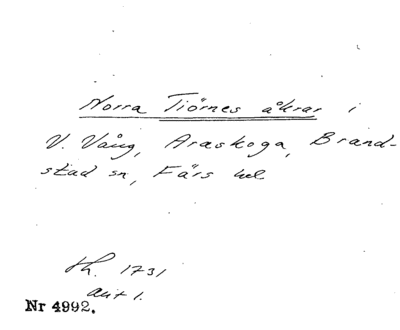 Norra Tiörnes åkrar i
V. Vång, Araskoga, Brand-
stad sn, Färs hd
Lh. 1731
akt 1.
Nr 4992.